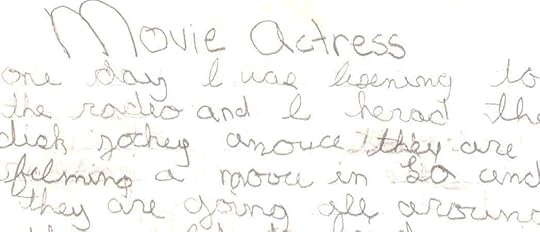 Movie Actress
one day I was lisening to
the radio and I herad the
disk jockey anouce they are
filming a movie in La and
they are going all around